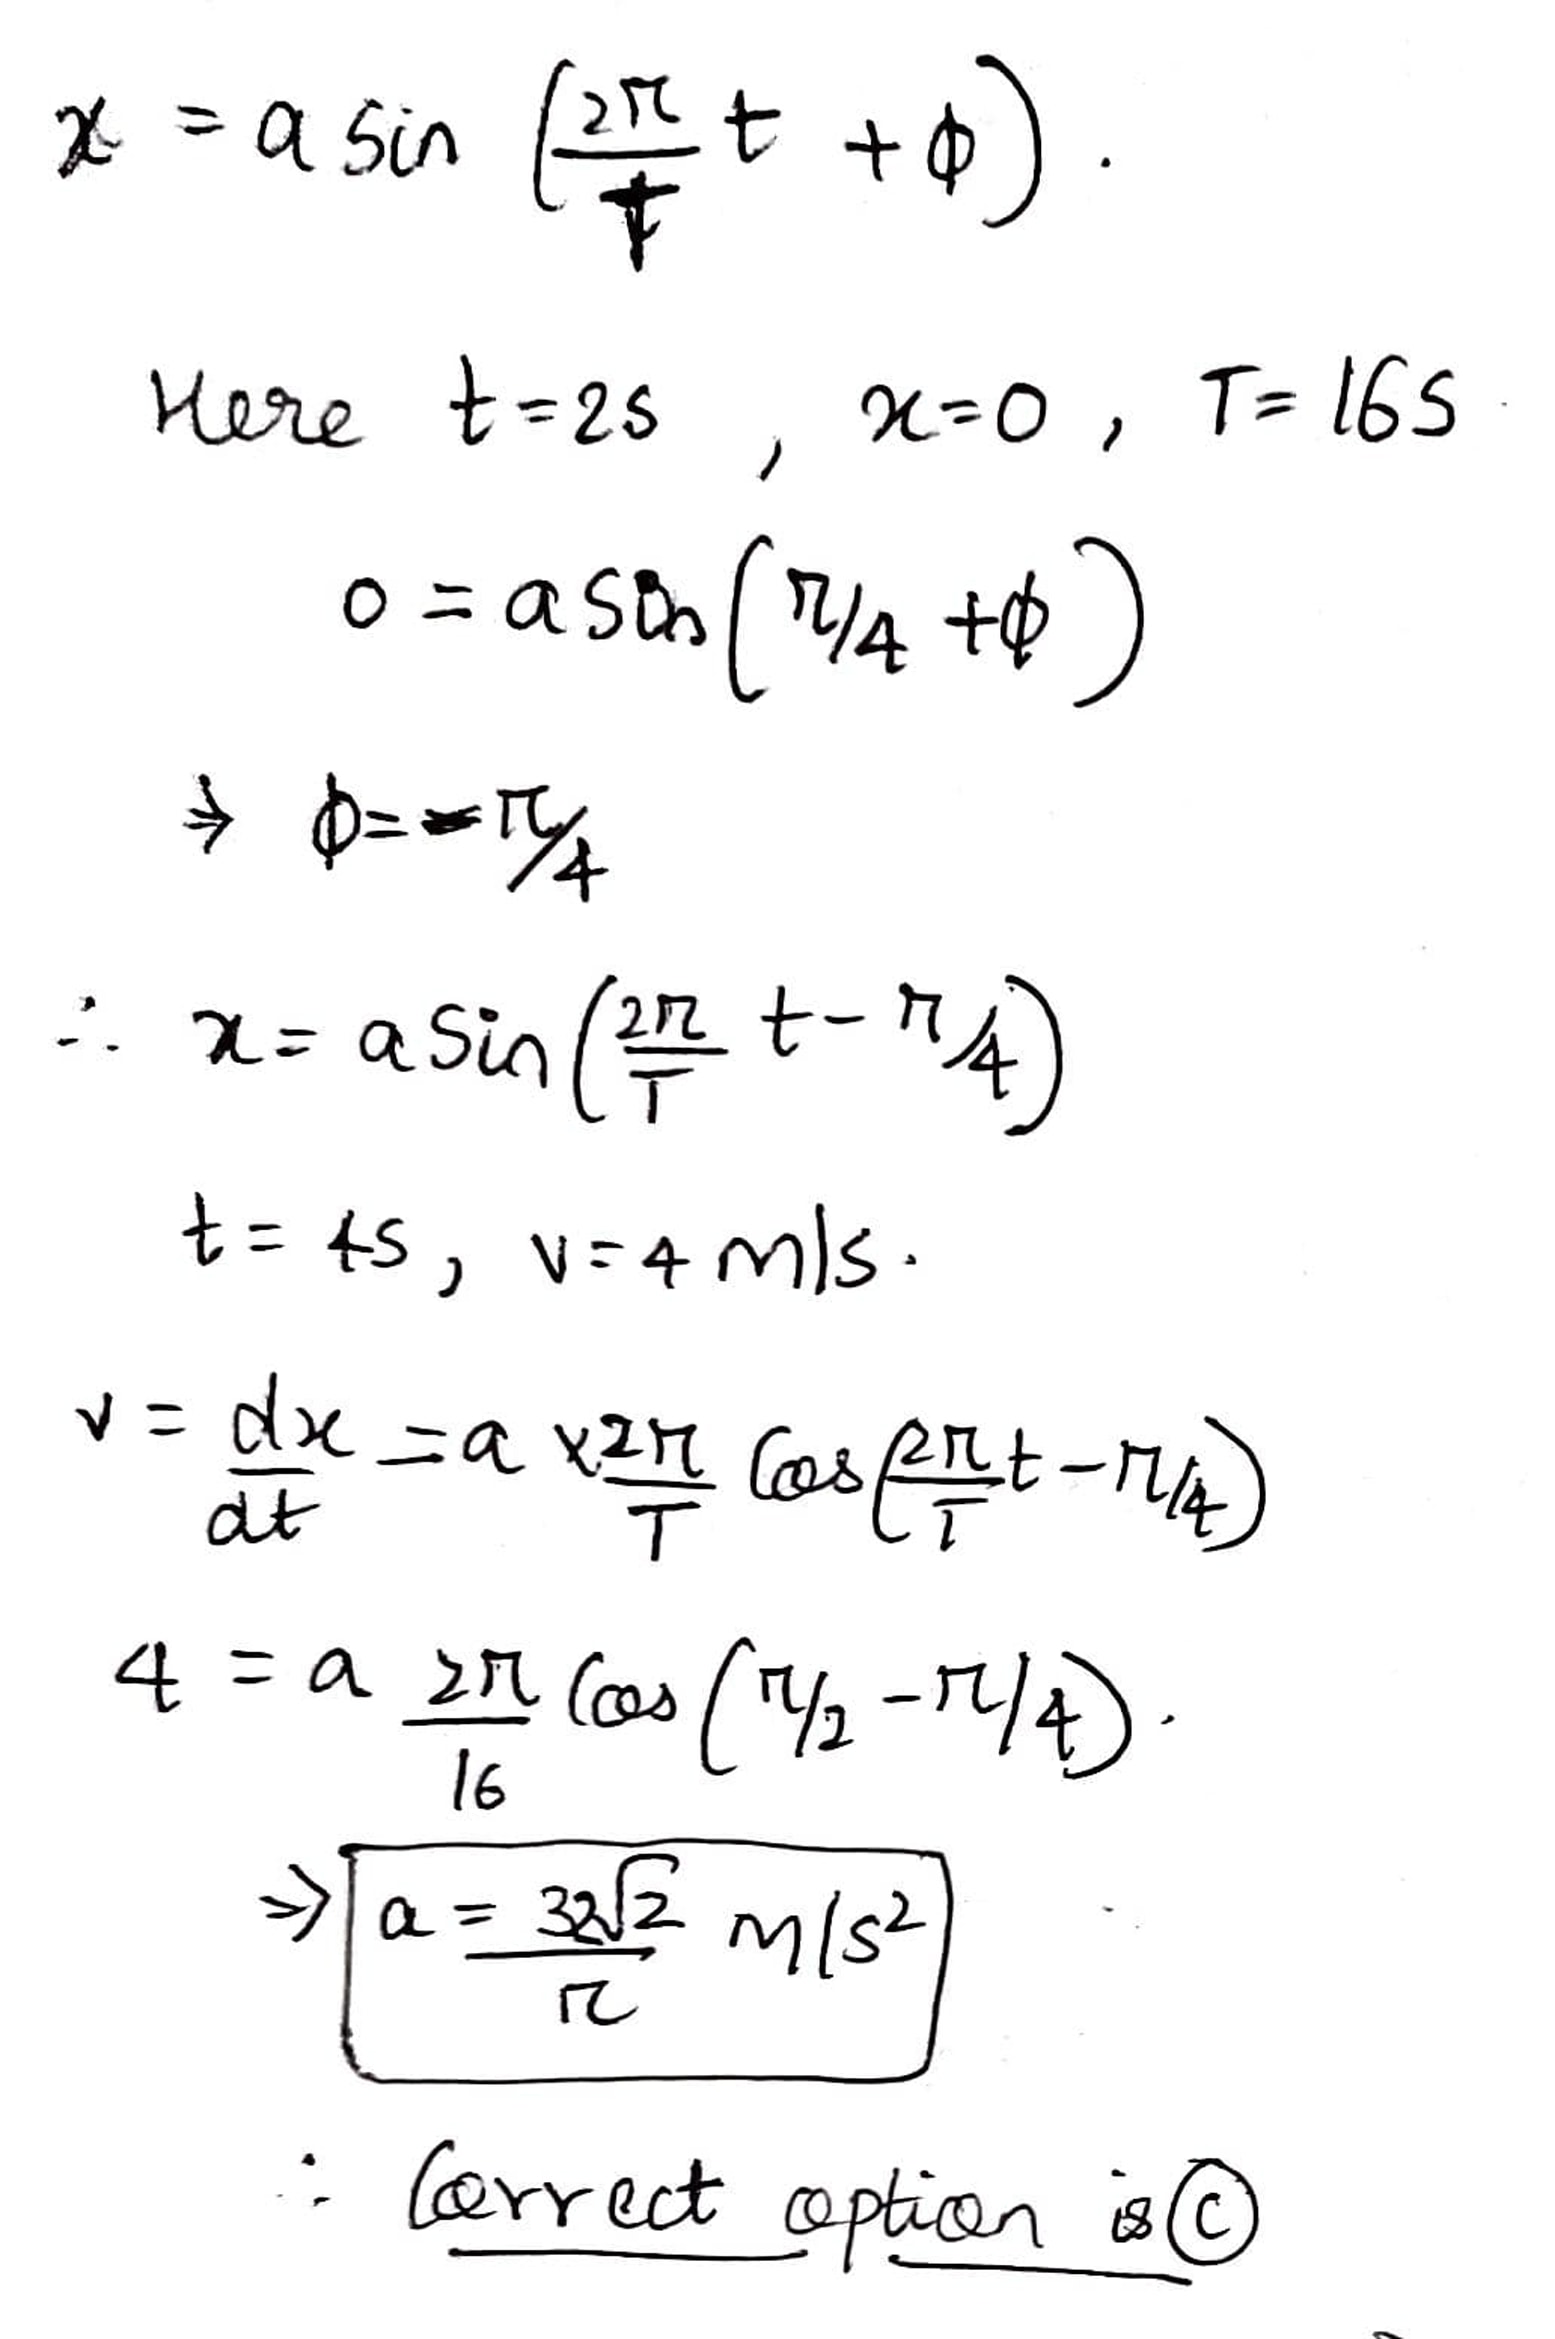 x = a sin (2π/T t + φ).
Here t=2s, x=0, T=16S
0 = a sin (π/4 + φ)
⇒ φ = -π/4
∴ x = a sin (2π/T t - π/4)
t = 4s, v = 4 m/s.
v = dx/dt = a × 2π/T Cos (2π/T t - π/4)
4 = a 2π/16 Cos (π/2 - π/4).
⇒ a = 32√2/π m/s²
∴ Correct option is (C)